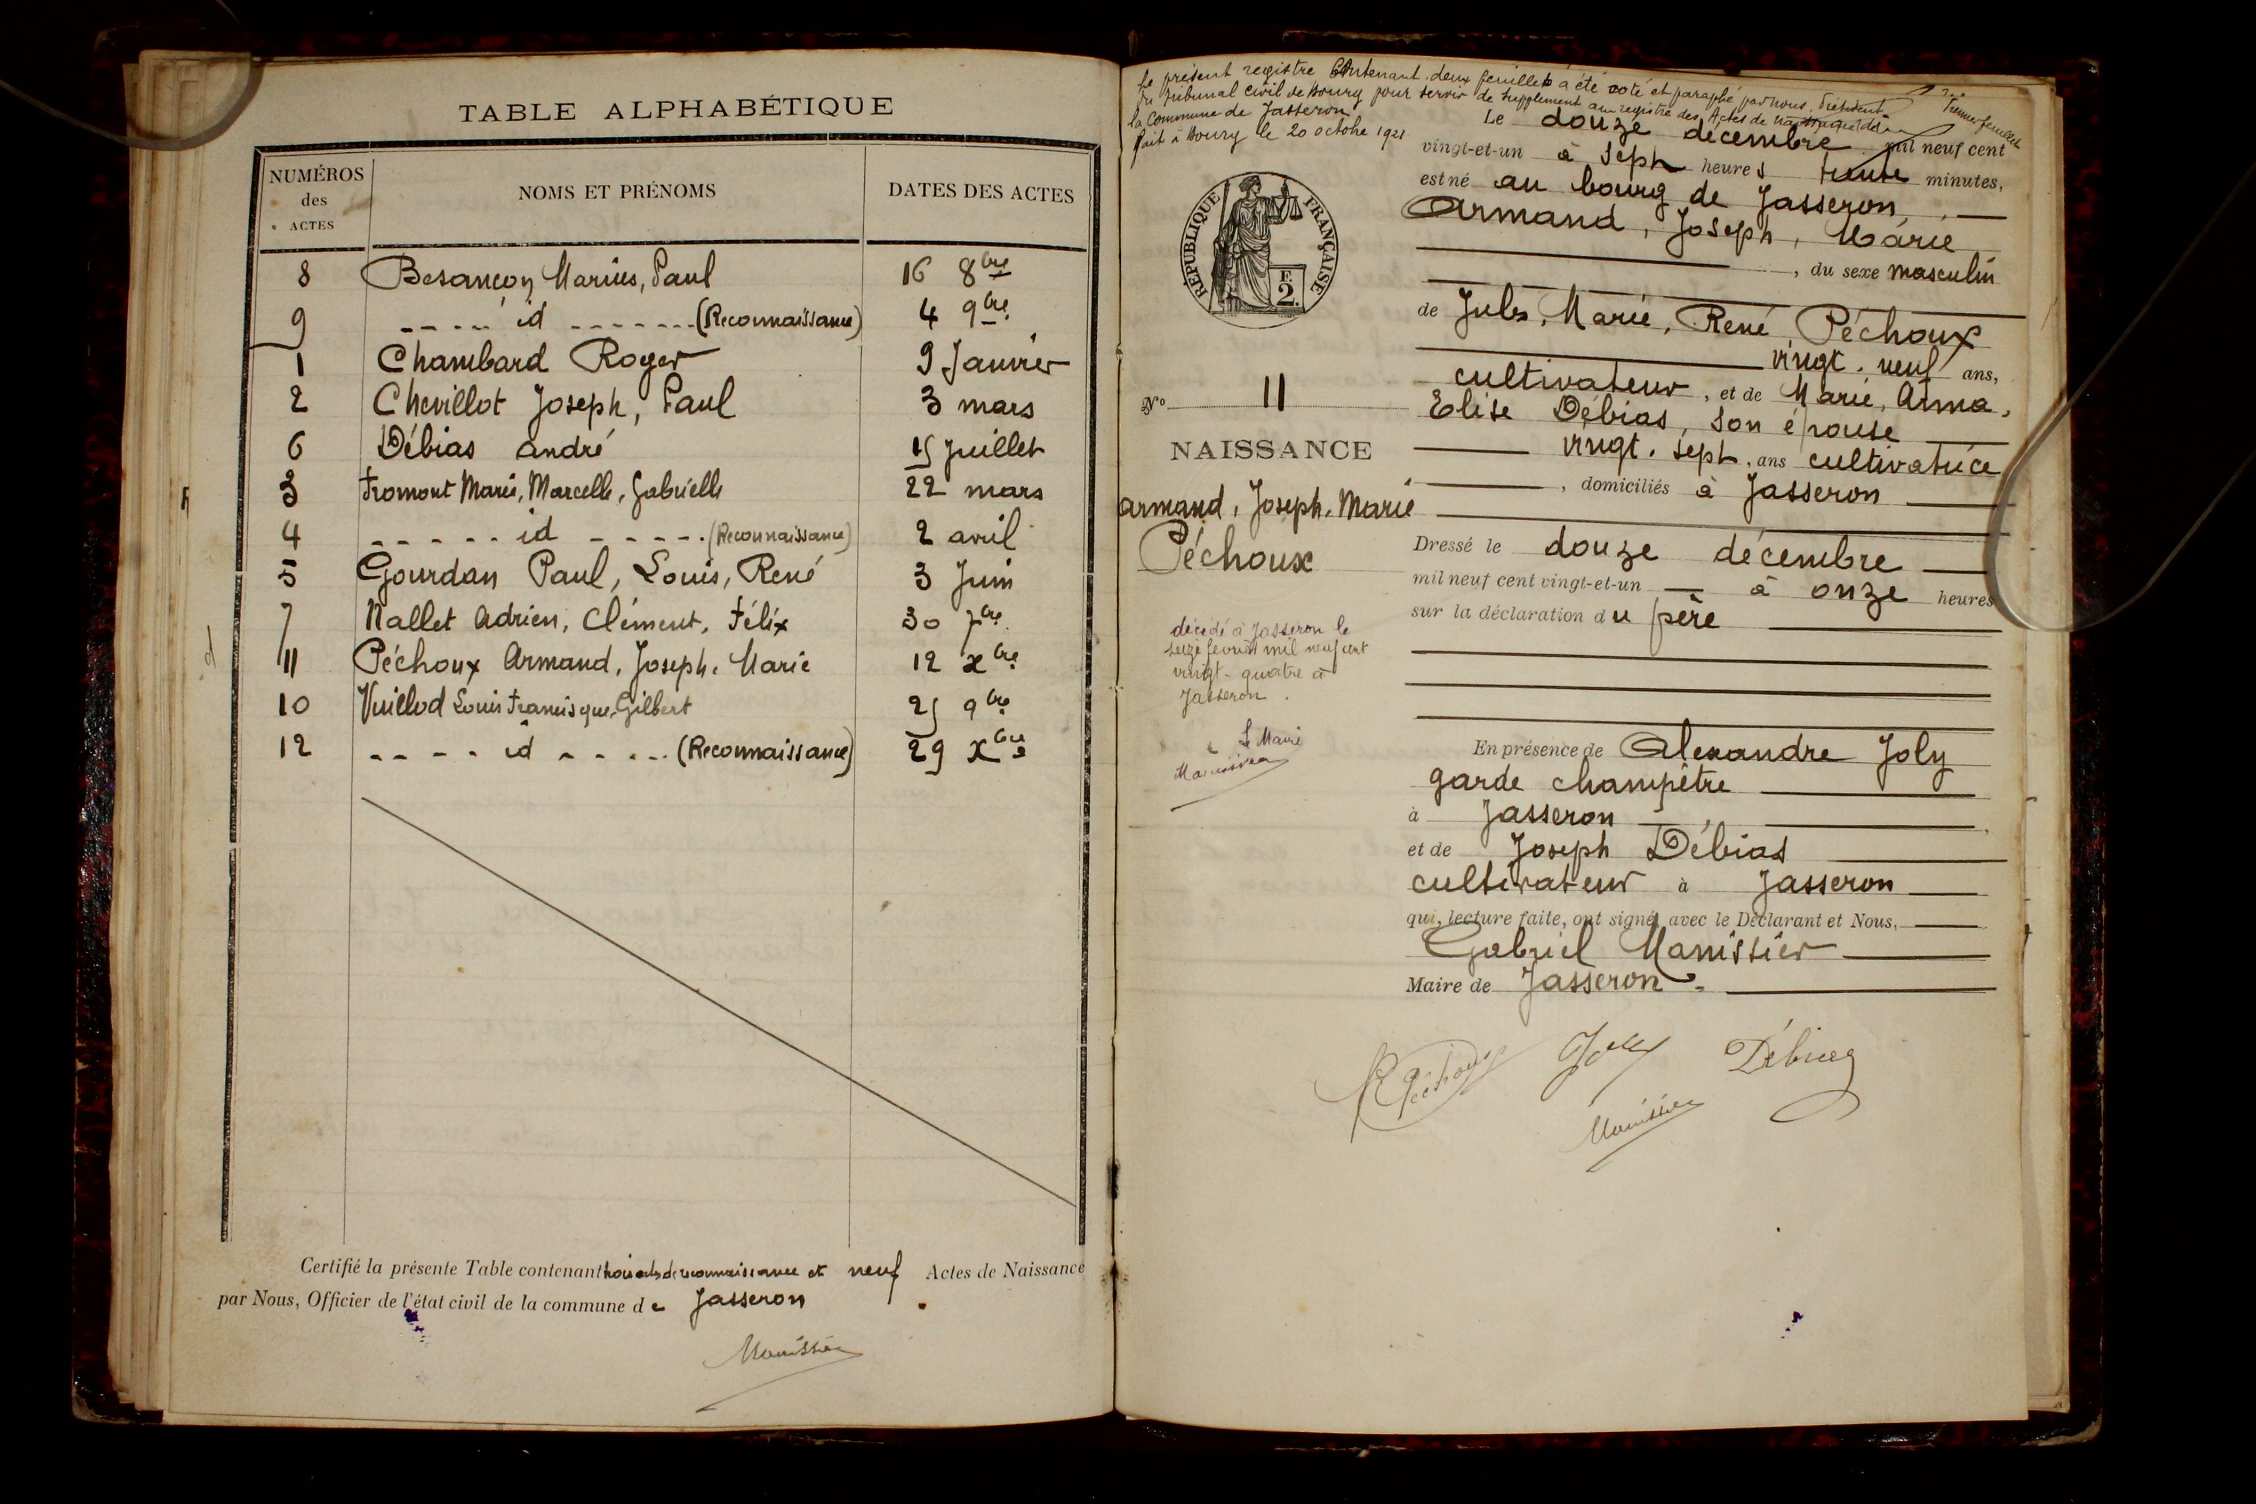 TABLE ALPHABÉTIQUE
NUMÉROS des ACTES
NOMS ET PRÉNOMS
DATES DES ACTES
8 Besançon Marius, Paul 16 8bre
9 - - - - - id - - - - - - - (Reconnaissance) 4 9bre
1 Chambard Roger 9 Janvier
2 Chevillot Joseph, Paul 3 mars
6 Débias andré 15 Juillet
3 Fromont Marie, Marcelle, Gabrielle 22 mars
4 - - - - - id - - - - - (Reconnaissance) 2 avril
5 Gourdan Paul, Louis, René 3 Juin
7 Nallet Adrien, Clément, Félix 30 7bre
11 Péchoux Armand, Joseph, Marie 12 xbre
10 Vuillod Louis Francisque, Gilbert 25 9bre
12 - - - - id - - - - - (Reconnaissance) 29 xbre
Certifié la présente Table contenant trois actes de reconnaissance et neuf Actes de Naissance
par Nous, Officier de l'état civil de la commune de Jasseron
Manissier
Le présent registre contenant deux feuillets a été coté et paraphé par nous, Président
du Tribunal Civil de Bourg pour servir de supplément au registre des Actes de
la Commune de Jasseron
fait à Bourg le 20 octobre 1921
Premier feuillet
RÉPUBLIQUE FRANÇAISE
F.
2.
No 11
NAISSANCE
armand, Joseph, Marie
Péchoux
décédé à Jasseron le
seize février mil neuf cent
vingt-quatre à
Jasseron.
Le Maire
Manissier
Le douze décembre mil neuf cent
vingt-et-un à sept heures trente minutes,
est né au bourg de Jasseron,
Armand, Joseph, Marie
, du sexe masculin
de Jules, Marie, René, Péchoux
vingt-neuf ans,
cultivateur, et de Marie, Arma,
Elise Débias, son épouse
vingt-sept, ans cultivatrice
, domiciliés à Jasseron
Dressé le douze décembre
mil neuf cent vingt-et-un à onze heures
sur la déclaration du père
En présence de Alexandre Joly
garde champêtre
à Jasseron,
et de Joseph Débias
cultivateur à Jasseron
qui, lecture faite, ont signé avec le Déclarant et Nous,
Gabriel Manissier
Maire de Jasseron.
R Péchoux Joly Débias
Manissier